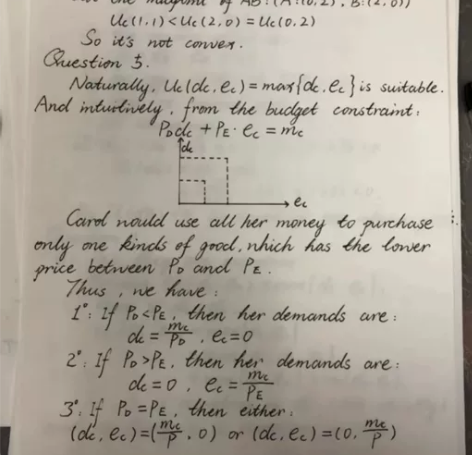 the midpoint of AB: (A:(0,2), B:(2,0))
Uc(1,1) < Uc(2,0) = Uc(0,2)
So it's not convex.
Question 5.
Naturally, Uc(dc, ec) = max{dc, ec} is suitable.
And intuitively, from the budget constraint:
PDdc + PE·ec = mc
dc
ec
Carol would use all her money to purchase
only one kinds of good, which has the lower
price between PD and PE.
Thus, we have:
1°: If PD<PE, then her demands are:
dc = mc/PD, ec=0
2°: If PD>PE, then her demands are:
dc = 0, ec = mc/PE
3°: If PD=PE, then either:
(dc, ec)=(mc/P, 0) or (dc, ec)=(0, mc/P)